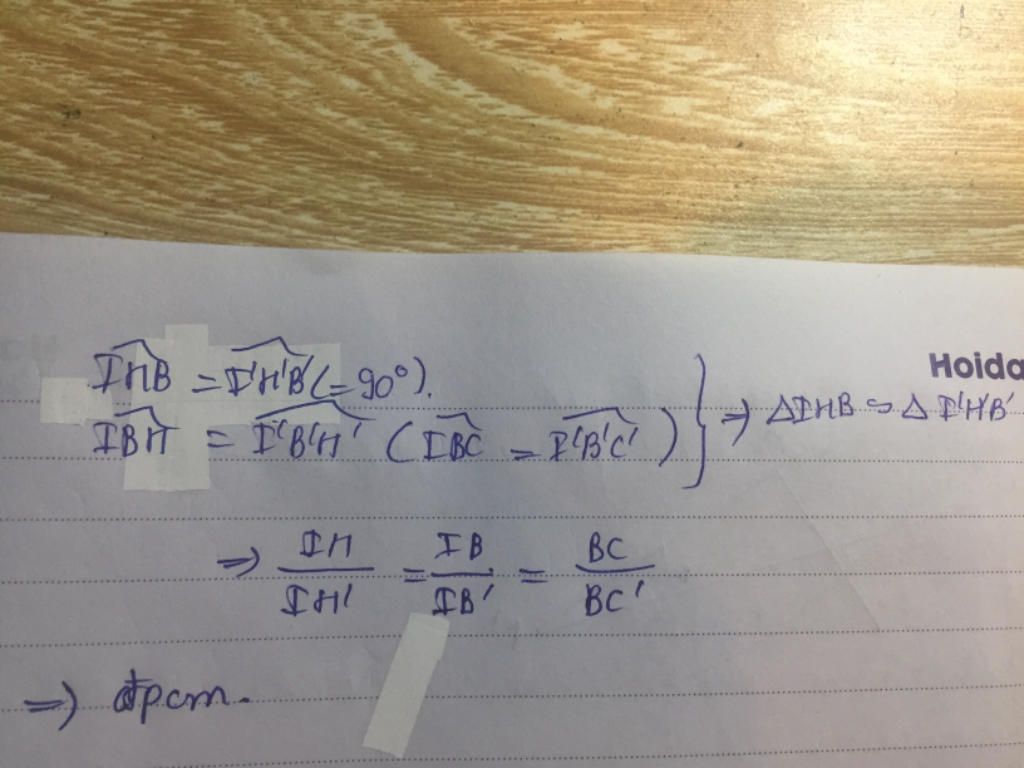 Hoida
∠IHB = ∠I'H'B' (= 90°).
∠IBH = ∠I'B'H' (∠IBC = ∠I'B'C') } ⇒ ΔIHB ∽ Δ I'H'B'
⇒ IH/IH' = IB/IB' = BC/BC'
⇒ đpcm.